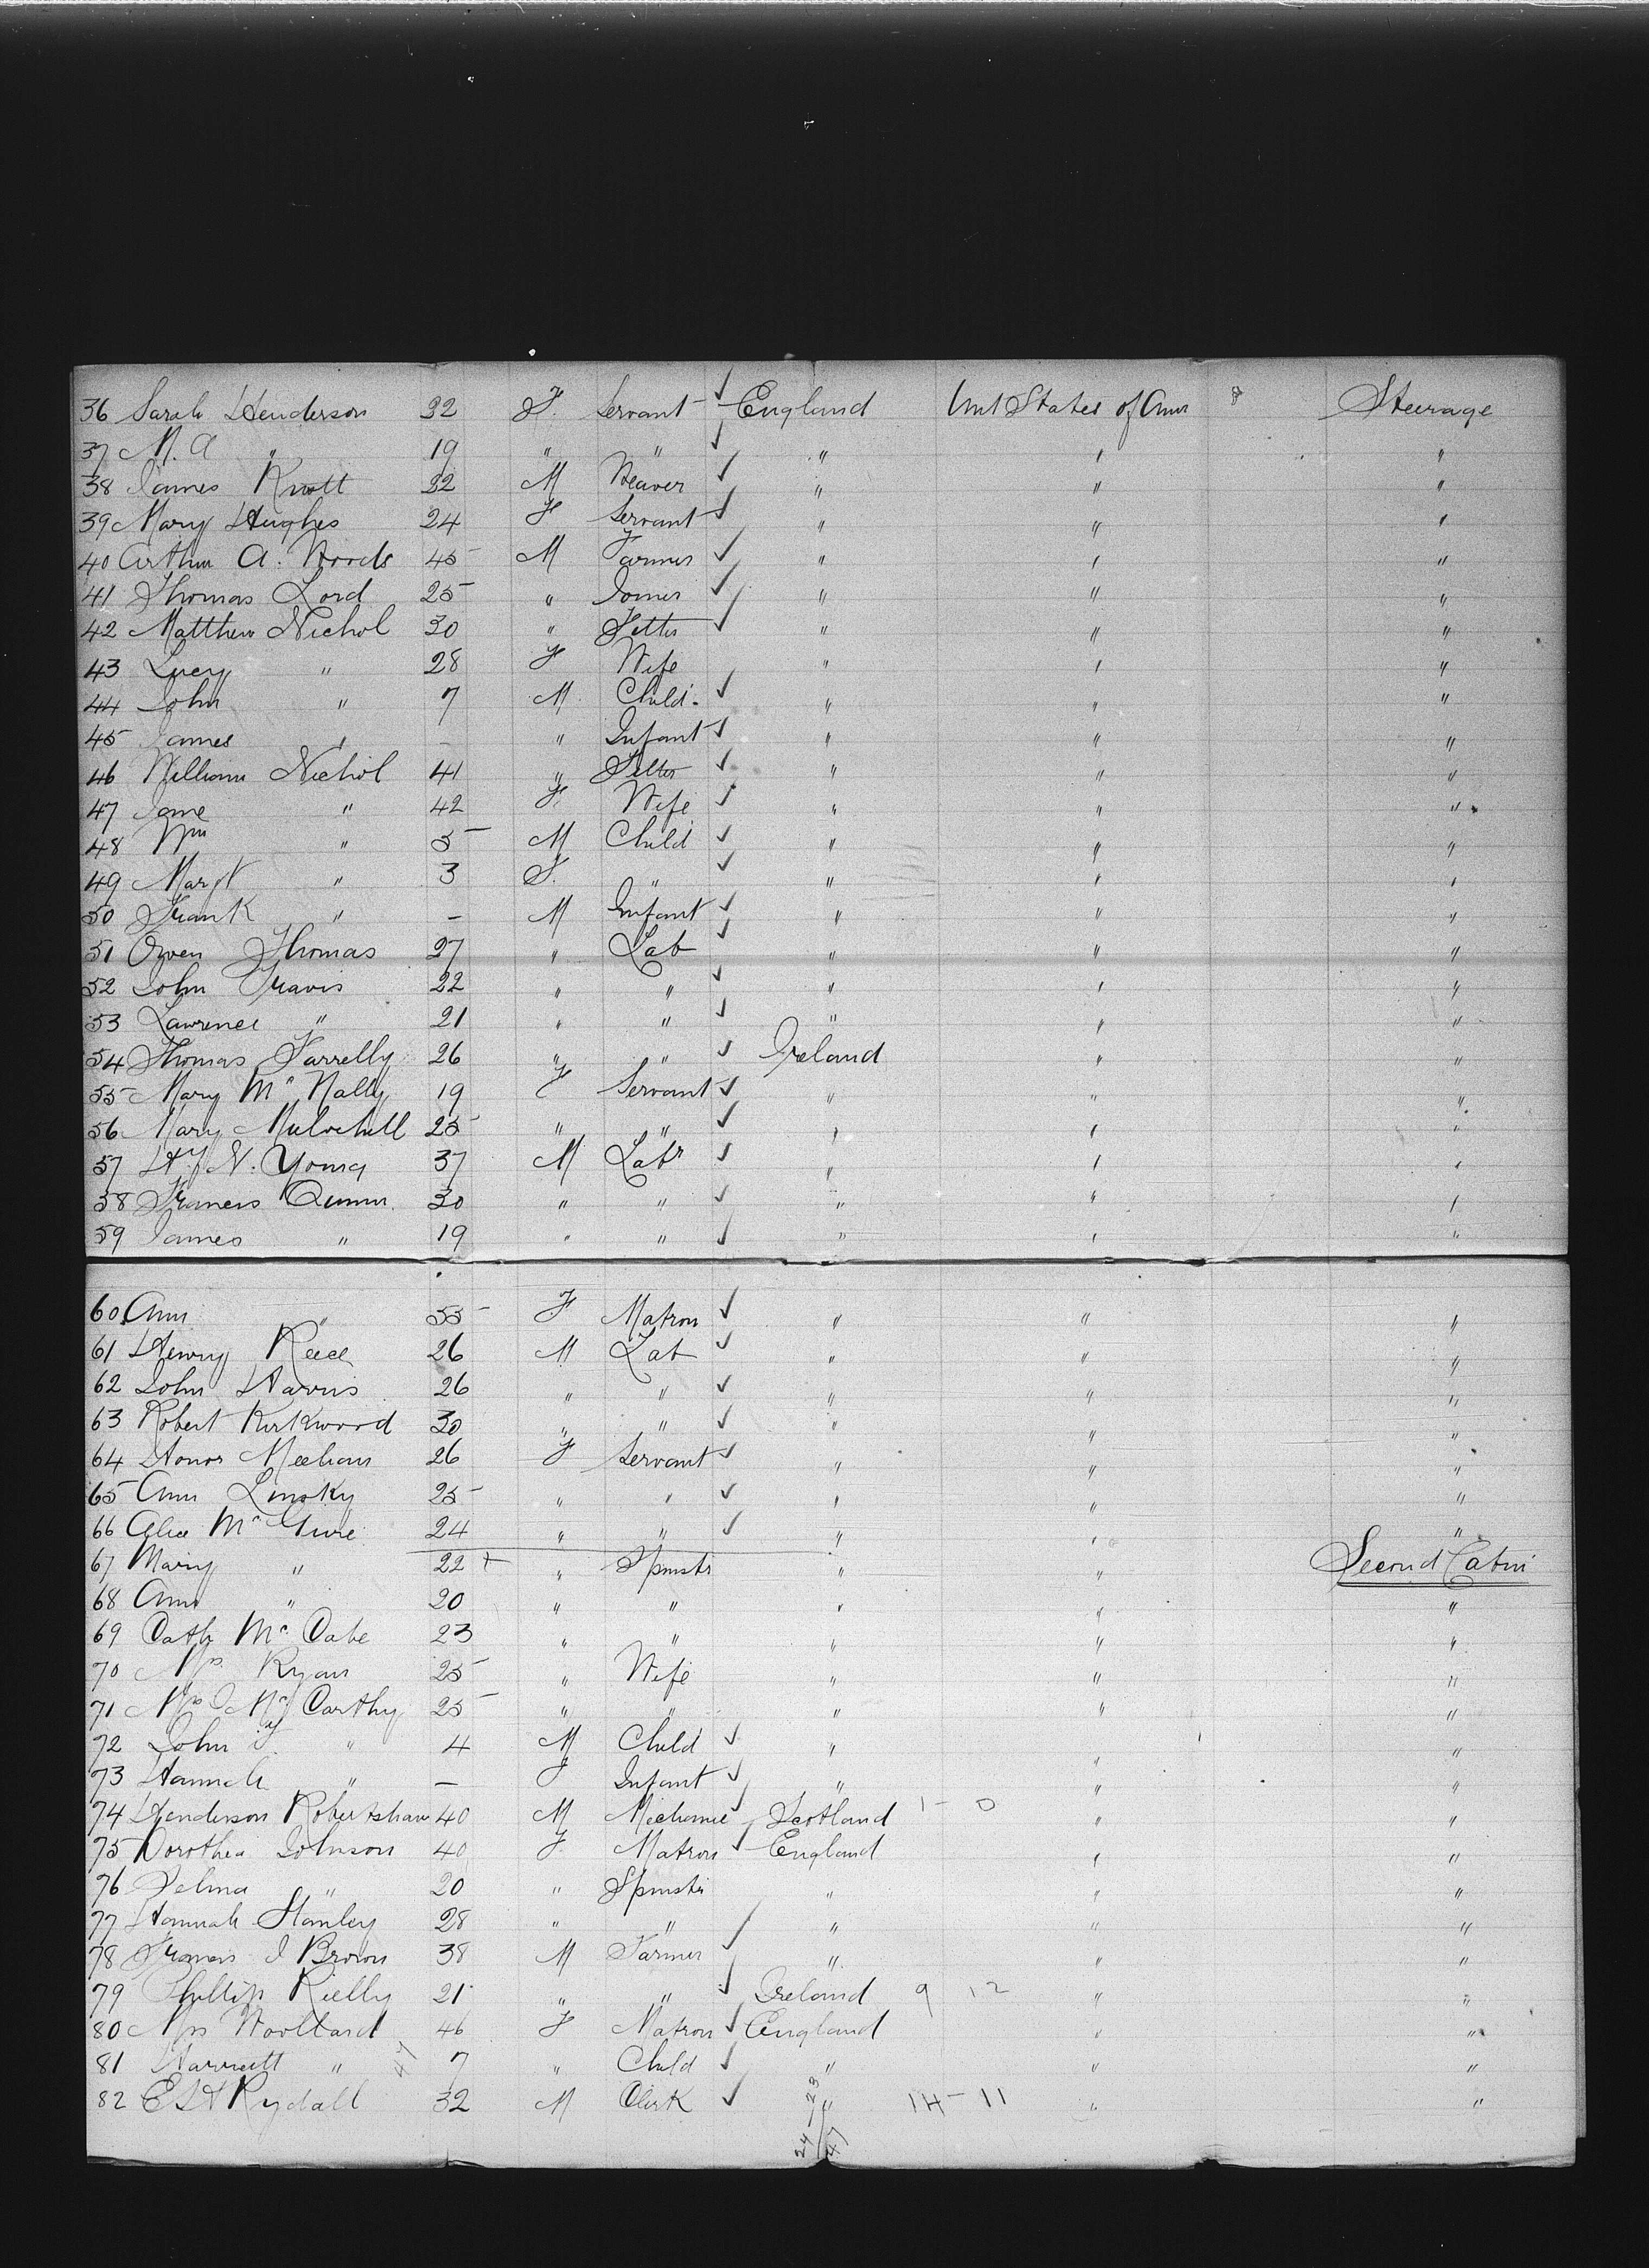 36 Sarah Henderson 32 F. Servant England Unt States of Amr Steerage
37 M. A " 19 " " " " "
38 James Knott 32 M Weaver " " "
39 Mary Hughes 24 F Servant " " "
40 Arthur A. Woods 45 M Farmer " " "
41 Thomas Lord 25 " Joiner " " "
42 Matthew Nichol 30 " Fitter " " "
43 Lucy " 28 F Wife " " "
44 John " 7 M Child " " "
45 James " - " Infant " " "
46 William Nichol 41 " Fitter " " "
47 Jane " 42 F. Wife " " "
48 Wm " 5 M Child " " "
49 Margt " 3 F. " " " "
50 Frank " - M Infant " " "
51 Owen Thomas 27 " Lab " " "
52 John Travis 22 " " " " "
53 Lawrence " 21 " " " " "
54 Thomas Farrelly 26 " " Ireland " "
55 Mary Mc Nally 19 F Servant " " "
56 Mary 25 " " " " "
57 Hy N. Young 37 M Labr " " "
58 Francis Quinn 30 " " " " "
59 James " 19 " " " " "
60 Ann " 55 F Matron " " "
61 Henry Reece 26 M Lab " " "
62 John Harris 26 " " " " "
63 Robert Kirkwood 30 " " " " "
64 Honor Meehan 26 F Servant " " "
65 Ann Linsky 25 " " " " "
66 Alice Mc Guire 24 " " " " "
67 Mary " 22 + " Spinstr " " Second Cabin
68 Ann " 20 " " " " "
69 Cath Mc Cabe 23 " " " " "
70 Mrs Ryan 25 " Wife " " "
71 Mrs Mc Carthy 25 " " " " "
72 John " 4 M Child " " "
73 Hannah " - F Infant " " "
74 Henderson Robertshaw 40 M Mechanic Scotland 1 - 0 " "
75 Dorothea Johnson 40 F. Matron England " "
76 Selma " 20 " Spinstr " " "
77 Hannah Stanley 28 " " " " "
78 Francis J Brown 38 M Farmer " " "
79 Phillip Rielly 21 " " Ireland 9 12 " "
80 Mrs Woollard 46 F Matron England " "
81 Harriett " 7 " Child " " "
82 E H Rydall 32 M Clerk " 14 - 11 " "
47
23
24/47